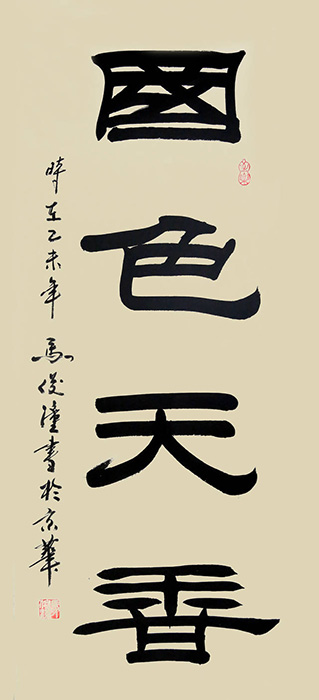 國色天香
時在乙未年馬俊潼書於京華